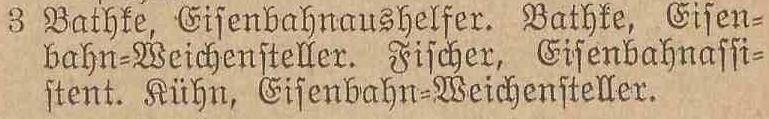 3 Bathke, Eiſenbahnaushelfer. Bathke, Eiſen-
bahn-Weichenſteller. Fiſcher, Eiſenbahnaſſi-
ſtent. Kühn, Eiſenbahn-Weichenſteller.